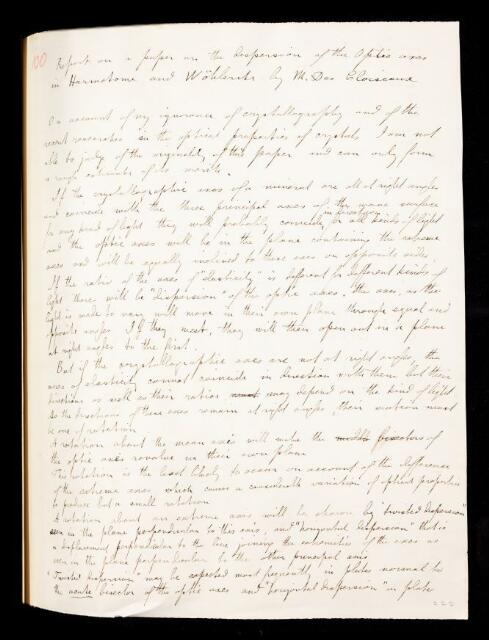 100
Report on a paper on the dispersion of the Optic axes
in Harmotome and Wöhlerite by M. Des Cloiseaux
On account of my ignorance of crystallography and of the
recent researches in the optical properties of crystals I am not
able to judge of the originality of this paper and can only form
a rough estimate of its worth.
If the crystallographic axes of a mineral are all at right angles
and coincide with the three principal axes of the wave surface
for any kind of light they will probably coincide in direction for all kinds of light
and the optic axes will be in the plane containing the extreme
axes and will be equally inclined to these axes on opposite sides.
If the ratio of the axes of "elasticity" is different for different kinds of
light there will be "dispersion" of the optic axes. The axes, as the
light is made to vary will move in their own plane through equal and
opposite angles. If they meet, they will then open out in a plane
at right angles to the first.
But if the crystallographic axes are not at right angles, the
axes of elasticity cannot coincide in direction with them but their
directions as well as their ratios may depend on the kind of light
As the directions of these axes remain at right angles, their motion must
be one of rotation
A rotation about the mean axis will make the bisectors of
the optic axes revolve in their own plane
This rotation is the least likely to occur on account of the difference
of the extreme axes which causes a considerable variation of optical properties
to produce but a small rotation
A rotation about an extreme axis will be shown by "twisted dispersion"
seen in the plane perpendicular to this axis, and "horizontal dispersion" that is
a displacement perpendicular to the line joining the extremities of the axes as
seen in the plane perpendicular to the other principal axis
Twisted dispersion may be expected most frequently in plates normal to
the acute bisector of the optic axes and "horizontal dispersion" in plates